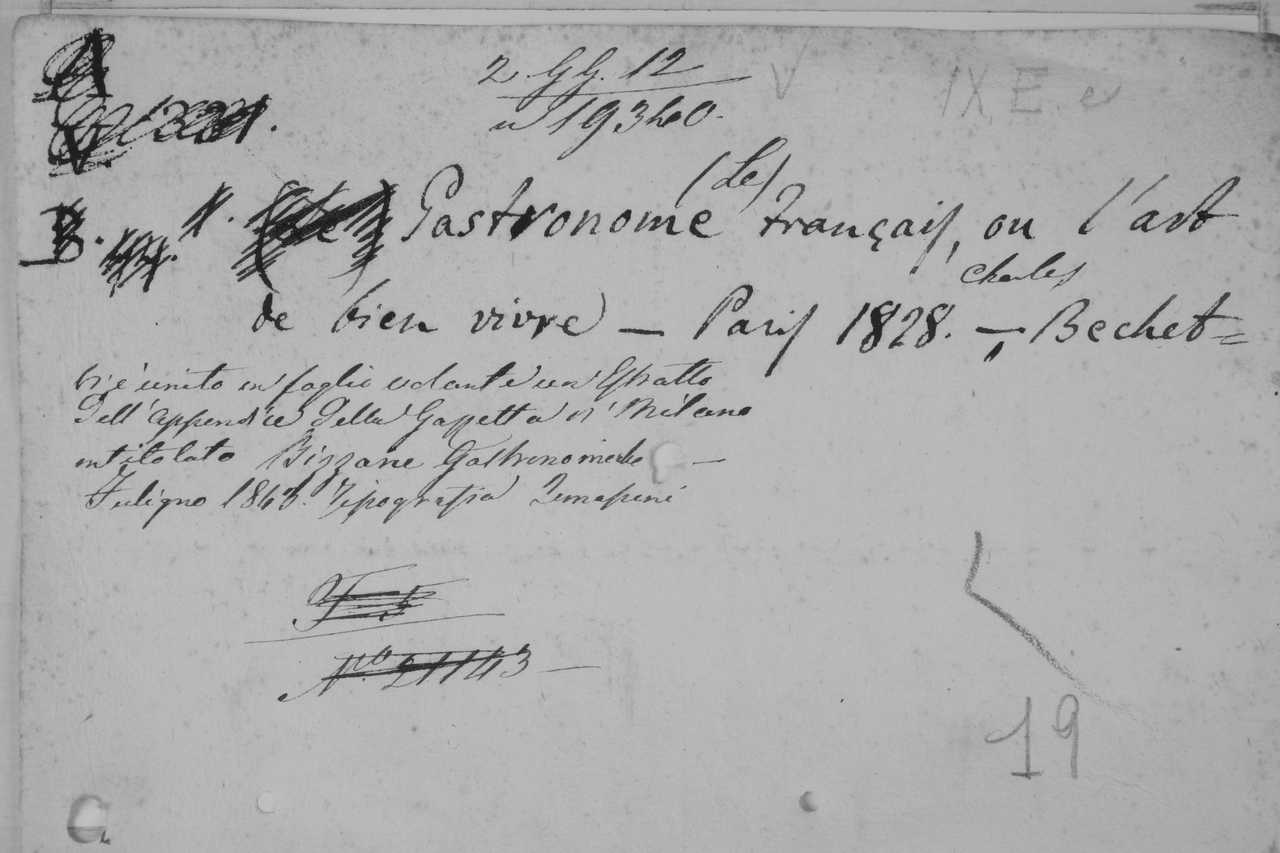 2. GG. 12
n 19340.
V
IX E
B.
(Le)
Gastronome français, ou l'art
Charles
de bien vivre — Paris 1828. — Bechet =
Vi è unito in foglio volante un Estratto
Dell'appendice della Gazzetta di Milano
intitolato Bizzarie Gastronomiche —
Fuligno 1843. Tipografia Tomassini
No 21143
19